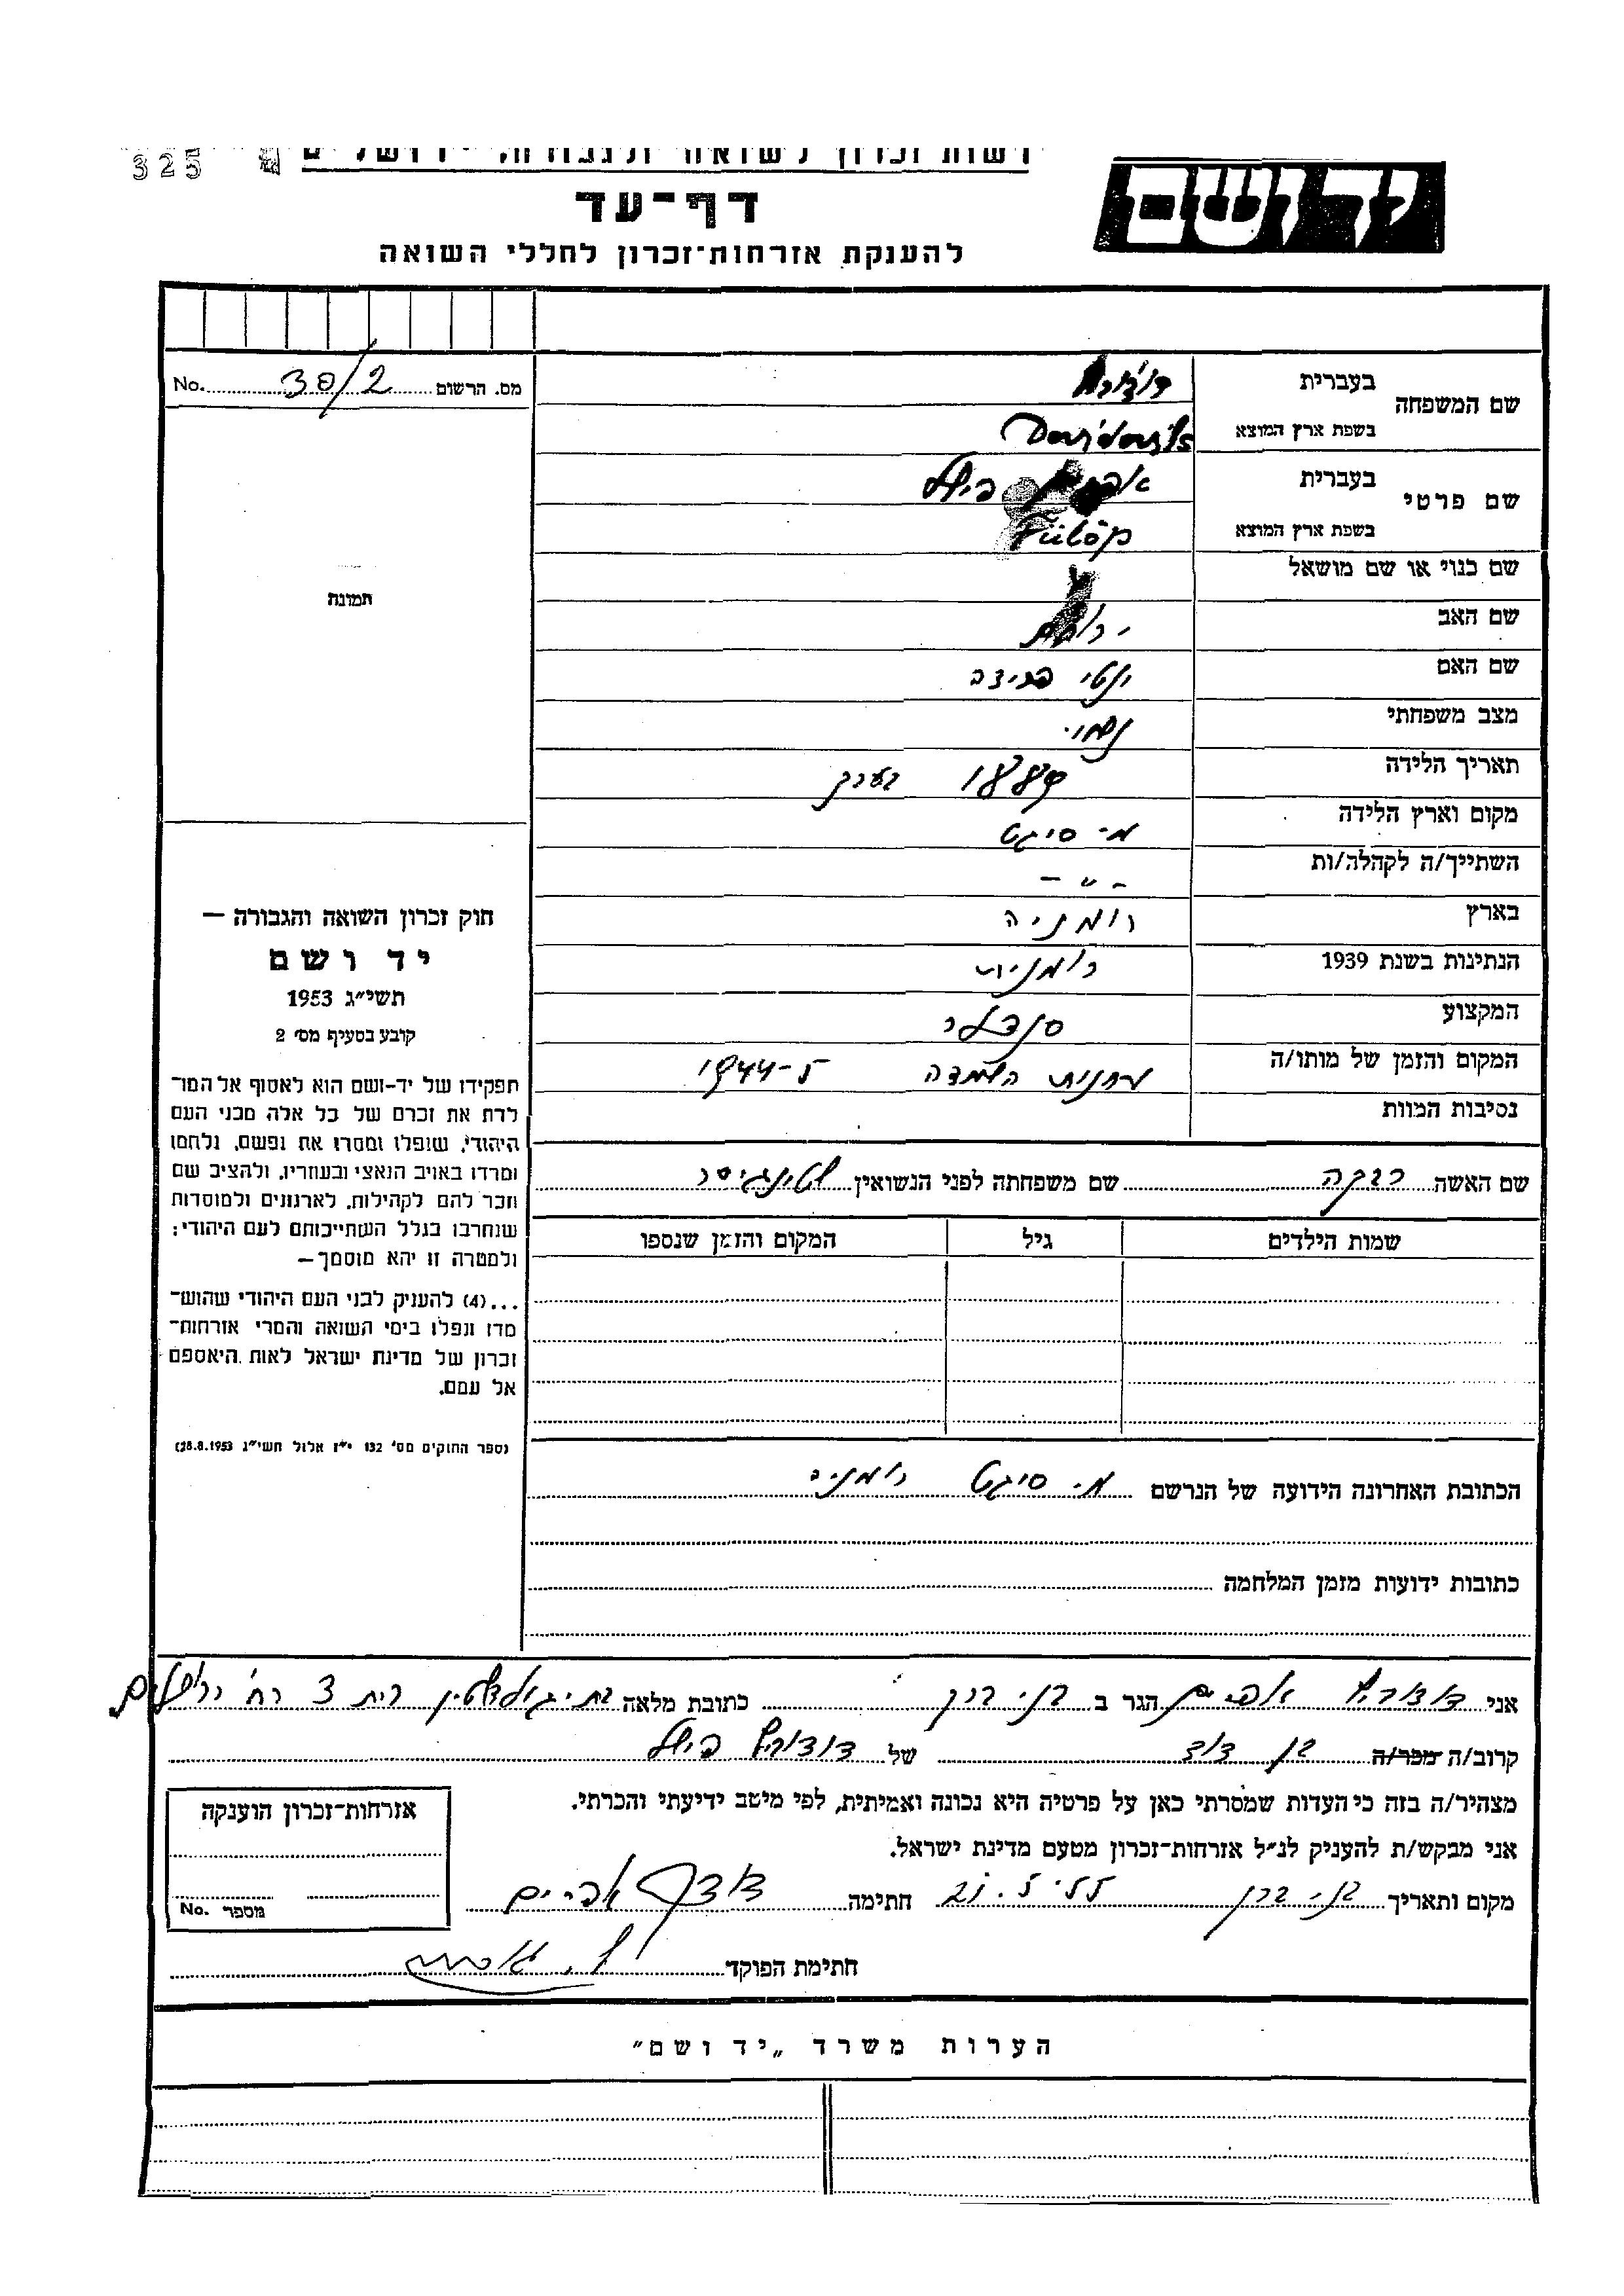 325
יד ושם
דף-עד
להענקת אזרחות-זכרון לחללי השואה
מס. הרשום 30/2 No.
שם המשפחה
בעברית
בשפת ארץ המוצא Davidovits
שם פרטי
בעברית
בשפת ארץ המוצא Fülöp
שם כנוי או שם מושאל
שם האב
שם האם
מצב משפחתי נשוי
תאריך הלידה 1884 בערך
מקום וארץ הלידה מ. סיגט
השתייך/ה לקהלה/ות - " -
בארץ רומניה
הנתינות בשנת 1939 רומנית
המקצוע סנדלר
המקום והזמן של מותו/ה מחנות השמדה 1944-5
נסיבות המוות
תמונה
חוק זכרון השואה והגבורה —
יד ושם
תשי״ג 1953
קובע בסעיף מס׳ 2
תפקידו של יד-ושם הוא לאסוף אל המו־
לדת את זכרם של כל אלה מבני העם
היהודי, שנפלו ומסרו את נפשם, נלחמו
ומרדו באויב הנאצי ובעוזריו, ולהציב שם
וזכר להם לקהילות, לארגונים ולמוסדות
שנחרבו בגלל השתייכותם לעם היהודי;
ולמטרה זו יהא מוסמך—
...(4) להעניק לבני העם היהודי שהוש־
מדו ונפלו בימי השואה והמרי אזרחות־
זכרון של מדינת ישראל לאות היאספם
אל עמם.
(ספר החוקים מס׳ 132 י״ז אלול תשי״ג 28.8.1953)
שם האשה רבקה שם משפחתה לפני הנשואין
שמות הילדים גיל המקום והזמן שנספו
הכתובת האחרונה הידועה של הנרשם מ. סיגט רומניה
כתובות ידועות מזמן המלחמה
אני אפרים הגר ב בני ברק כתובת מלאה בית 3 רח׳ ירושלים
קרוב/ה מכר/ה בן דוד של
מצהיר/ה בזה כי העדות שמסרתי כאן על פרטיה היא נכונה ואמיתית, לפי מיטב ידיעתי והכרתי.
אני מבקש/ת להעניק לנ״ל אזרחות-זכרון מטעם מדינת ישראל.
מקום ותאריך בני ברק חתימה אפרים
חתימת הפוקד
אזרחות-זכרון הוענקה
מספר No.
הערות משרד „יד ושם״